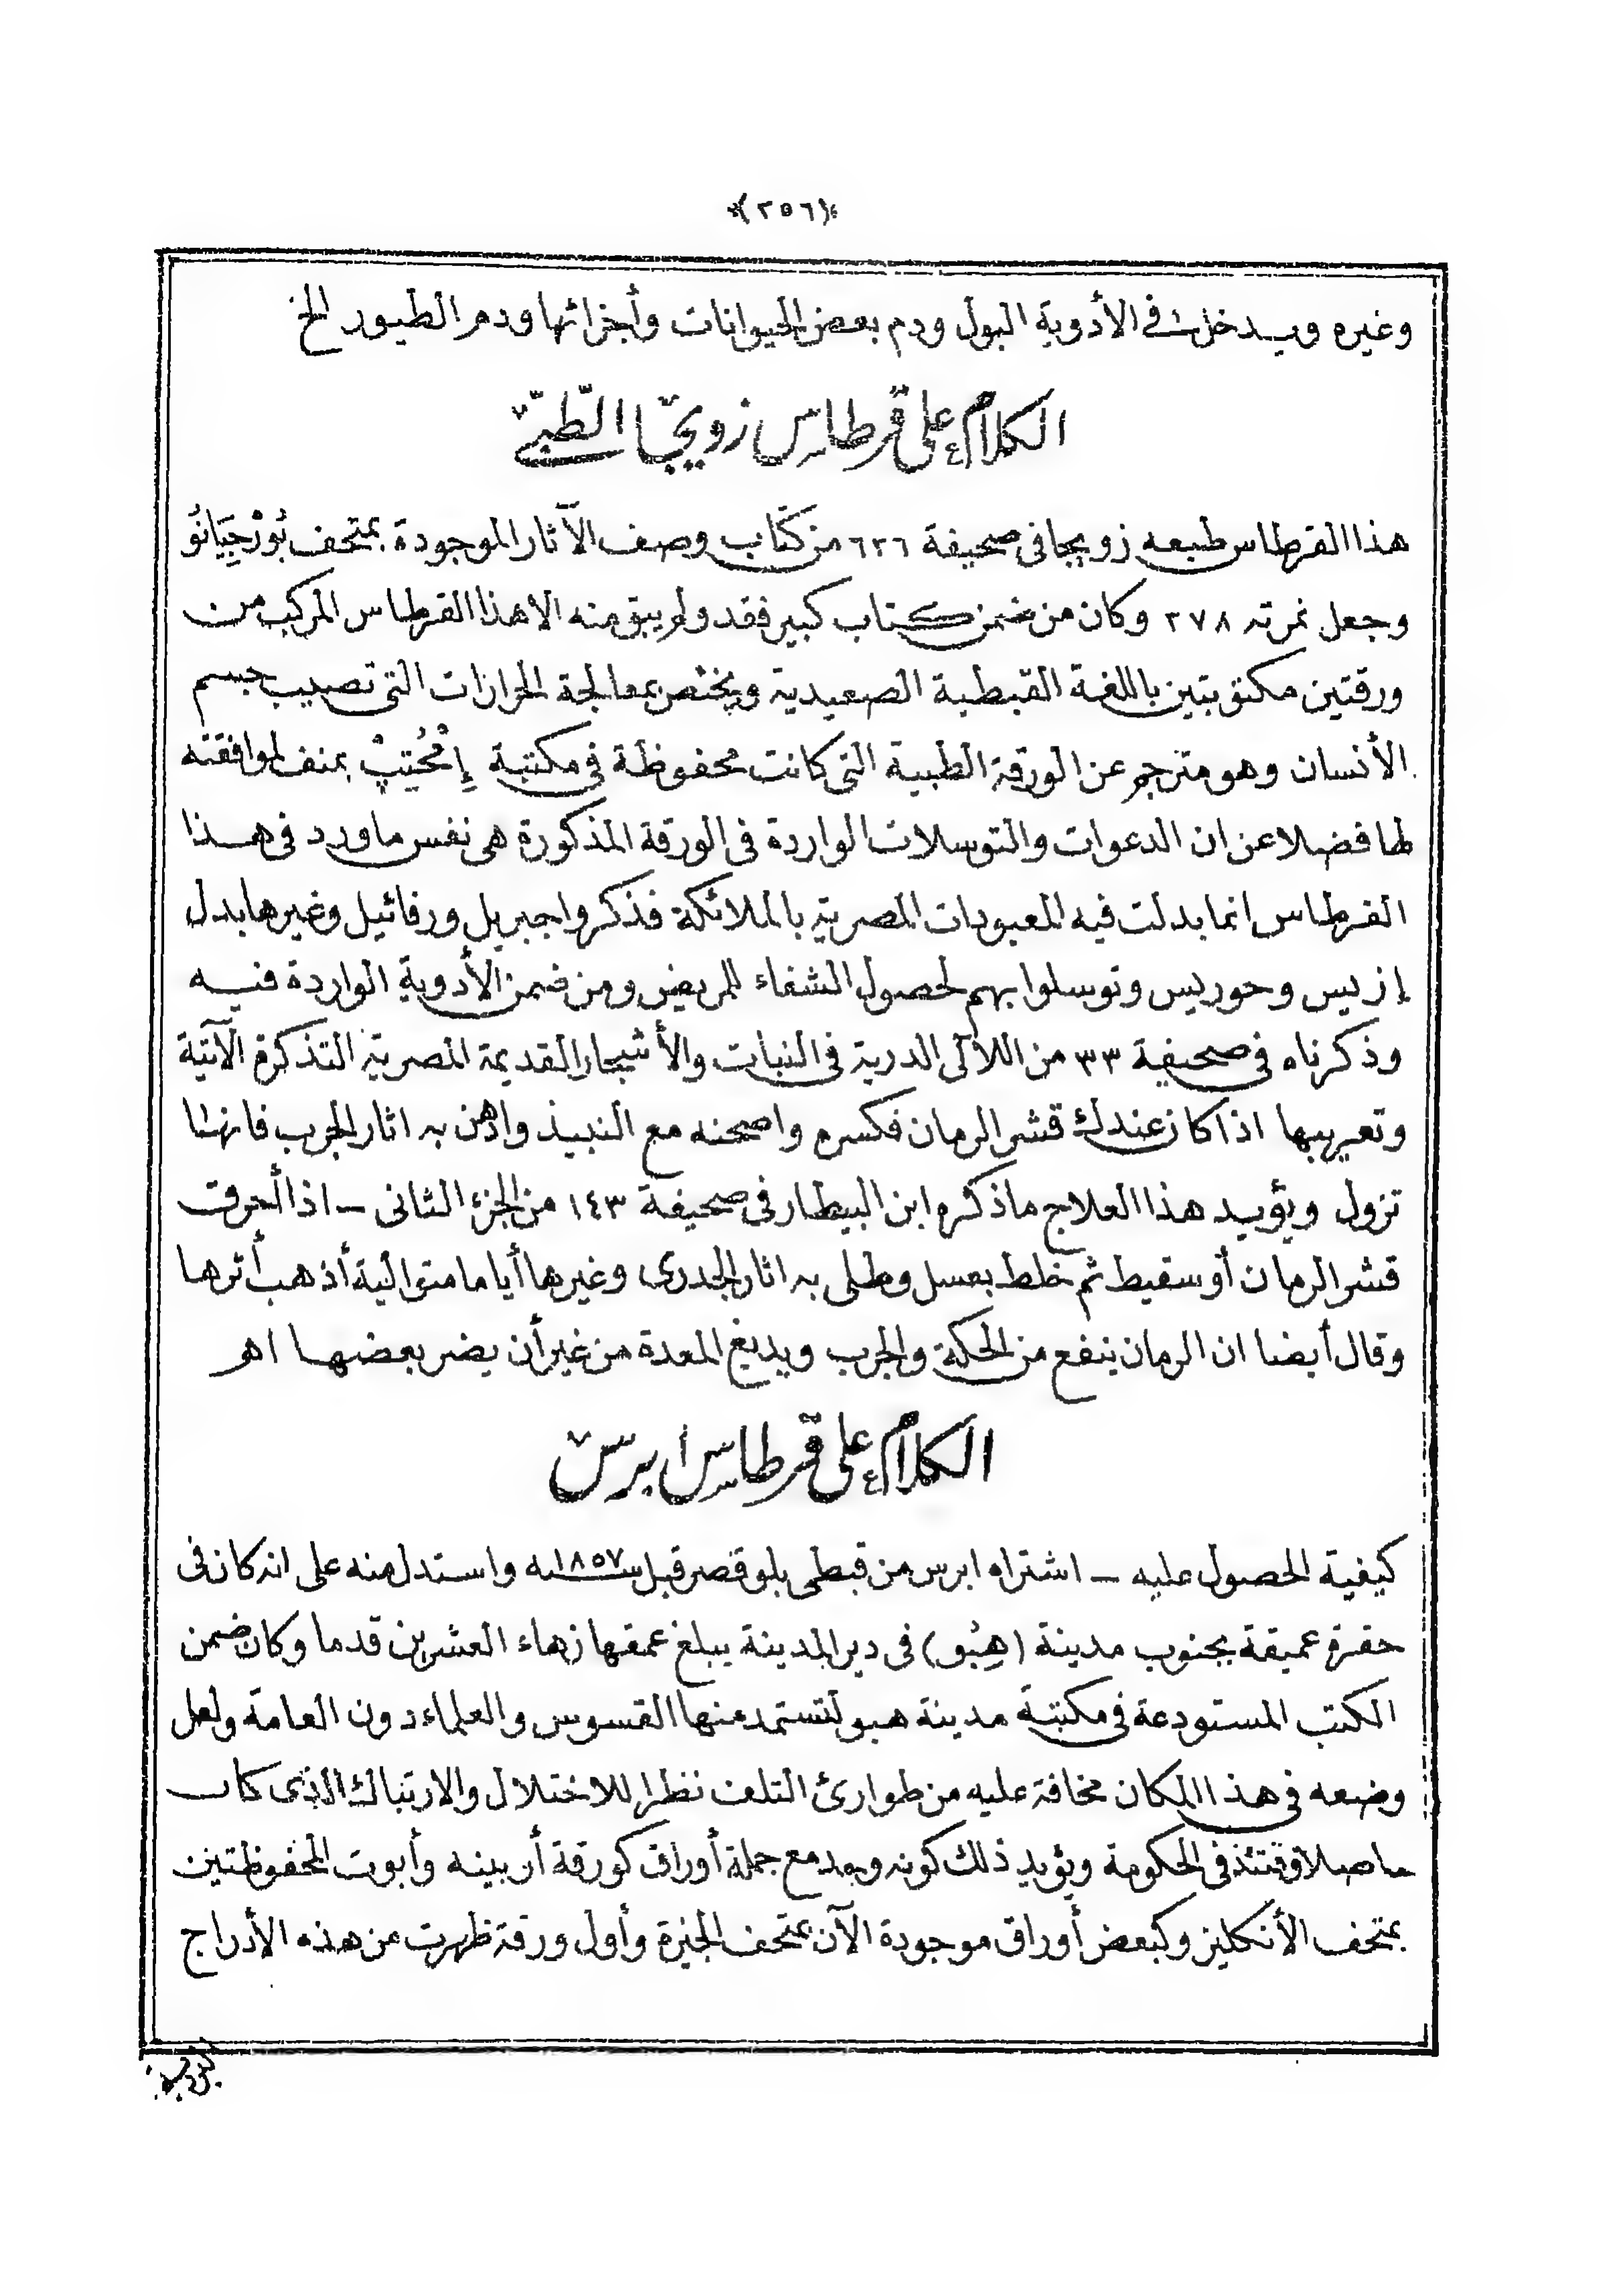 ﴿٢٥٦﴾
وغيره ويدخل في الأدوية البول ودم بعض الحيوانات وأجزائها ودم الطيور الخ
الكلام على قرطاس زويجا الطّبّي
هذا القرطاس طبعه زويجا في صحيفة ٦٢٦ من كتاب وصف الآثار الموجودة بمتحف بُورْجِيَانُو
وجعل نمرته ٢٧٨ وكان من ضمن كتاب كبير فقد ولم يبق منه الا هذا القرطاس المركب من
ورقتين مكتوبتين باللغة القبطية الصعيدية ويختص بمعالجة الحزازات التي تصيب جسم
الأنسان وهو مترجم عن الورقة الطبية التي كانت محفوظة في مكتبة إِمْحُتِبْ بمنف لموافقته
لها فضلا عن ان الدعوات والتوسلات الواردة في الورقة المذكورة هي نفس ما ورد في هذا
القرطاس انما بدلت فيه المعبودات المصرية بالملائكة فذكروا جبريل ورفائيل وغيرها بدل
إزيس وحوريس وتوسلوا بهم لحصول الشفاء للمريض ومن ضمن الأدوية الواردة فيه
وذكرناه في صحيفة ٣٣ من اللآلى الدرية في النبات والأشجار القديمة المصرية التذكرة الآتية
وتعريبها اذا كان عندك قشر الرمان فكسره واصحنه مع النبيذ وادهن به اثار الجرب فانها
تزول ويؤيد هذا العلاج ما ذكره ابن البيطار في صحيفة ١٤٣ من الجزء الثاني – اذا أحرقت
قشر الرمان أو سقيط ثم خلط بعسل وطلى به اثار الجدرى وغيرها أياما متوالية أذهب أثرها
وقال أيضا ان الرمان ينفع من الحكة والجرب ويدبغ المعدة من غير أن يضر بعضها اهـ
الكلام على قرطاس ابرس
كيفية الحصول عليه – اشتراه ابرس من قبطى بلوقصر قبل سنة ١٨٥٧ واستدل منه على انه كان في
حفرة عميقة بجنوب مدينة (هِبُو) في دير المدينة يبلغ عمقها زهاء العشرين قدما وكان ضمن
الكتب المستودعة في مكتبة مدينة هبو لتستمد منها القسوس والعلماء دون العامة ولعل
وضعه في هذا المكان مخافة عليه من طوارئ التلف نظرا للاختلال والارتباك الذى كان
حاصلا وقتئذ في الحكومة ويؤيد ذلك كونه وجد مع جملة أوراق كورقة أربينه وأبوت المحفوظتين
بمتحف الأنكليز وكبعض أوراق موجودة الآن بمتحف الجيزة وأول ورقة ظهرت من هذه الأدراج